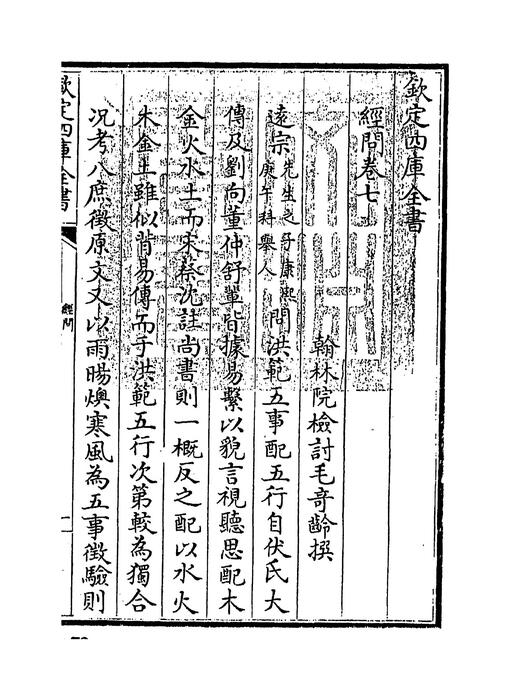 欽定四庫全書
經問卷七
翰林院檢討毛竒齡撰
遠宗先生之子康熙庚午科舉人問洪範五事配五行自伏氏大
傳及劉向董仲舒輩皆據易繫以貌言視聽思配木
金火水土而宋蔡沈註尚書則一概反之配以水火
木金土雖似背易傳而于洪範五行次第較為獨合
况考八庶徵原文又以雨暘燠寒風為五事徵驗則
欽定四庫全書
經問